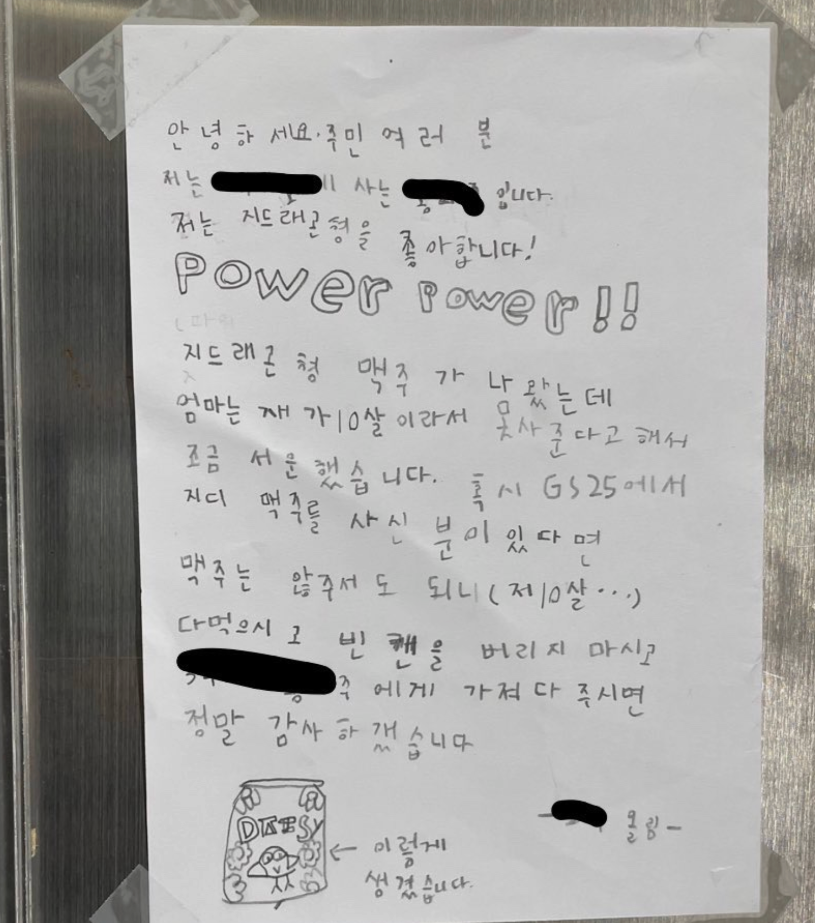 안녕하세요. 주민 여러분
저는 사는 입니다.
저는 지드래곤형을 좋아합니다!
Power Power!!
지드래곤 형 맥주가 나왔는데
엄마는 재가 10살이라서 못사준다고 해서
조금 서운했습니다. 혹시 GS25에서
지디 맥주를 사신 분이 있다면
맥주는 않주서도 되니(제10살...)
다먹으시고 빈 캔을 버리지 마시고
에게 가져다 주시면
정말 감사하겠습니다
이렇게
생겼습니다.
올림-